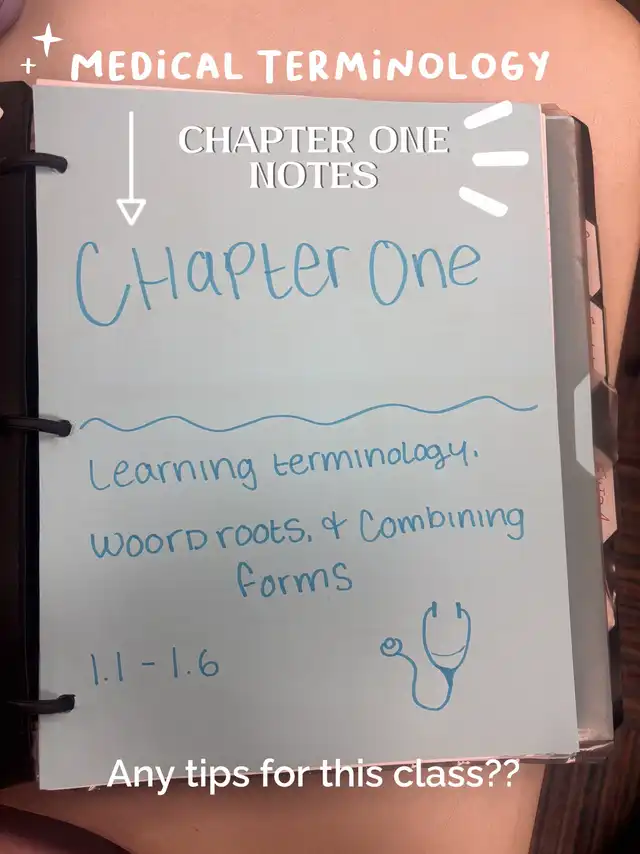 MEDICAL TERMINOLOGY
CHAPTER ONE
NOTES
CHapter One
Learning terminology,
woord roots, & Combining
forms
1.1 - 1.6
Any tips for this class??